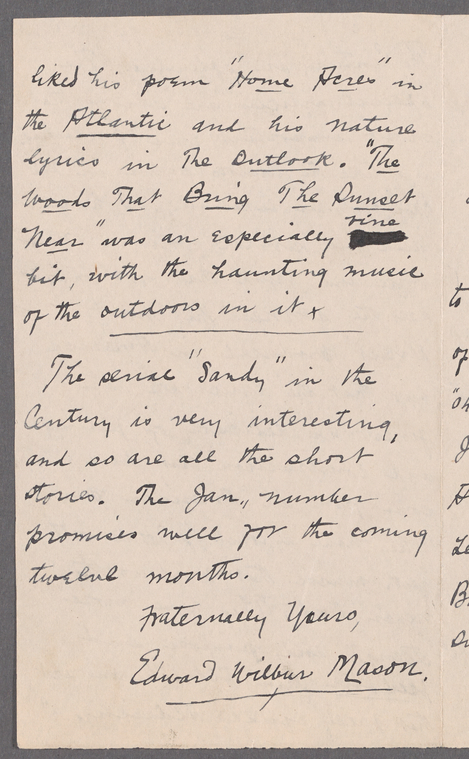 liked his poem "Home Acres" in
the Atlantic and his nature
lyrics in The Outlook. "The
Woods That Bring The Sunset
Near" was an especially fine
bit, with the haunting music
of the outdoors in it x
The serial "Sandy" in the
Century is very interesting,
and so are all the short
stories. The Jan., number
promises well for the coming
twelve months.
Fraternally Yours,
Edward Wilbur Mason.
to
of